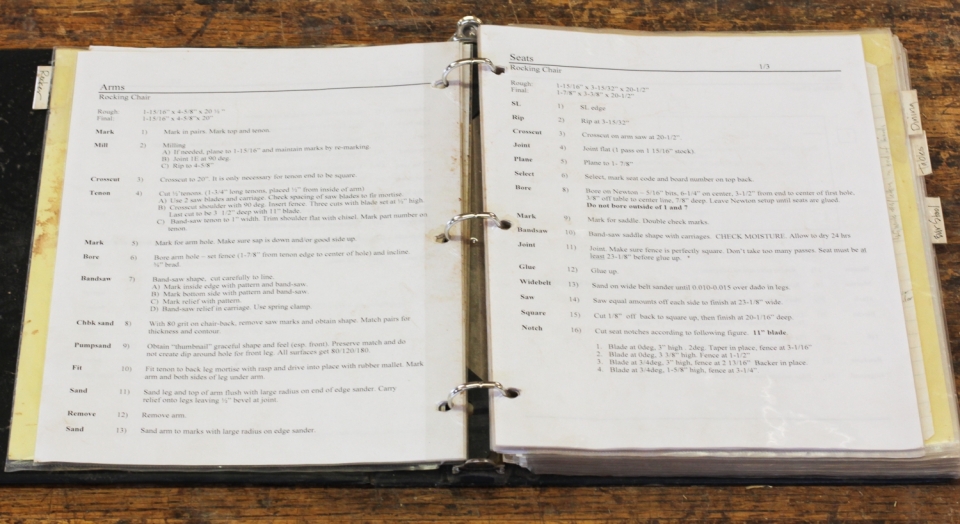 Rocker
Arms
Rocking Chair
Rough: 1-15/16" x 4-5/8" x 20 ½"
Final: 1-15/16" x 4-5/8"x 20"
Mark 1) Mark in pairs. Mark top and tenon.
Mill 2) Milling
A) If needed, plane to 1-15/16" and maintain marks by re-marking
B) Joint 1E at 90 deg.
C) Rip to 4-5/8"
Crosscut 3) Crosscut to 20". It is only necessary for tenon end to be square.
Tenon 4) Cut ½"tenons. (1-3/4" long tenons, placed ½" from inside of arm)
A) Use 2 saw blades and carriage. Check spacing of saw blades to fit mortise.
B) Crosscut shoulder with 90 deg. Insert fence. Three cuts with blade set at ¼" high.
Last cut to be 3 1/2" deep with 11" blade.
C) Band-saw tenon to 1" width. Trim shoulder flat with chisel. Mark part number on
tenon.
Mark 5) Mark for arm hole. Make sure sap is down and/or good side up.
Bore 6) Bore arm hole – set fence (1-7/8" from tenon edge to center of hole) and incline.
½" brad.
Bandsaw 7) Band-saw shape, cut carefully to line.
A) Mark inside edge with pattern and band-saw.
B) Mark bottom side with pattern and band-saw.
C) Mark relief with pattern.
D) Band-saw relief in carriage. Use spring clamp.
Chbk sand 8) With 80 grit on chair-back, remove saw marks and obtain shape. Match pairs for
thickness and contour.
Pumpsand 9) Obtain "thumbnail" graceful shape and feel (esp. front). Preserve match and do
not create dip around hole for front leg. All surfaces get 80/120/180.
Fit 10) Fit tenon to back leg mortise with rasp and drive into place with rubber mallet. Mark
arm and both sides of leg under arm.
Sand 11) Sand leg and top of arm flush with large radius on end of edge sander. Carry
relief onto legs leaving ½" bevel at joint.
Remove 12) Remove arm.
Sand 13) Sand arm to marks with large radius on edge sander.
Seats
Rocking Chair 1/3
Rough: 1-15/16" x 3-15/32" x 20-1/2"
Final: 1-7/8" x 3-3/8" x 20-1/2"
SL 1) SL edge
Rip 2) Rip at 3-15/32"
Crosscut 3) Crosscut on arm saw at 20-1/2".
Joint 4) Joint flat (1 pass on 1 15/16" stock).
Plane 5) Plane to 1- 7/8"
Select 6) Select, mark seat code and board number on top back.
Bore 8) Bore on Newton – 5/16" bits, 6-1/4" on center, 3-1/2" from end to center of first hole,
3/8" off table to center line, 7/8" deep. Leave Newton setup until seats are glued.
Do not bore outside of 1 and 7
Mark 9) Mark for saddle. Double check marks.
Bandsaw 10) Band-saw saddle shape with carriages. CHECK MOISTURE. Allow to dry 24 hrs
Joint 11) Joint. Make sure fence is perfectly square. Don't take too many passes. Seat must be at
least 23-1/8" before glue up.
Glue 12) Glue up.
Widebelt 13) Sand on wide belt sander until 0.010-0.015 over dado in legs.
Saw 14) Saw equal amounts off each side to finish at 23-1/8" wide.
Square 15) Cut 1/8" off back to square up, then finish at 20-1/16" deep.
Notch 16) Cut seat notches according to following figure. 11" blade.
1. Blade at 0deg, 3" high . 2deg. Taper in place, fence at 3-1/16"
2. Blade at 0deg, 3 3/8" high. Fence at 1-1/2"
3. Blade at 3/4deg, 3" high, fence at 2 13/16" Backer in place.
4. Blade at 3/4deg, 1-5/8" high, fence at 3-1/4".